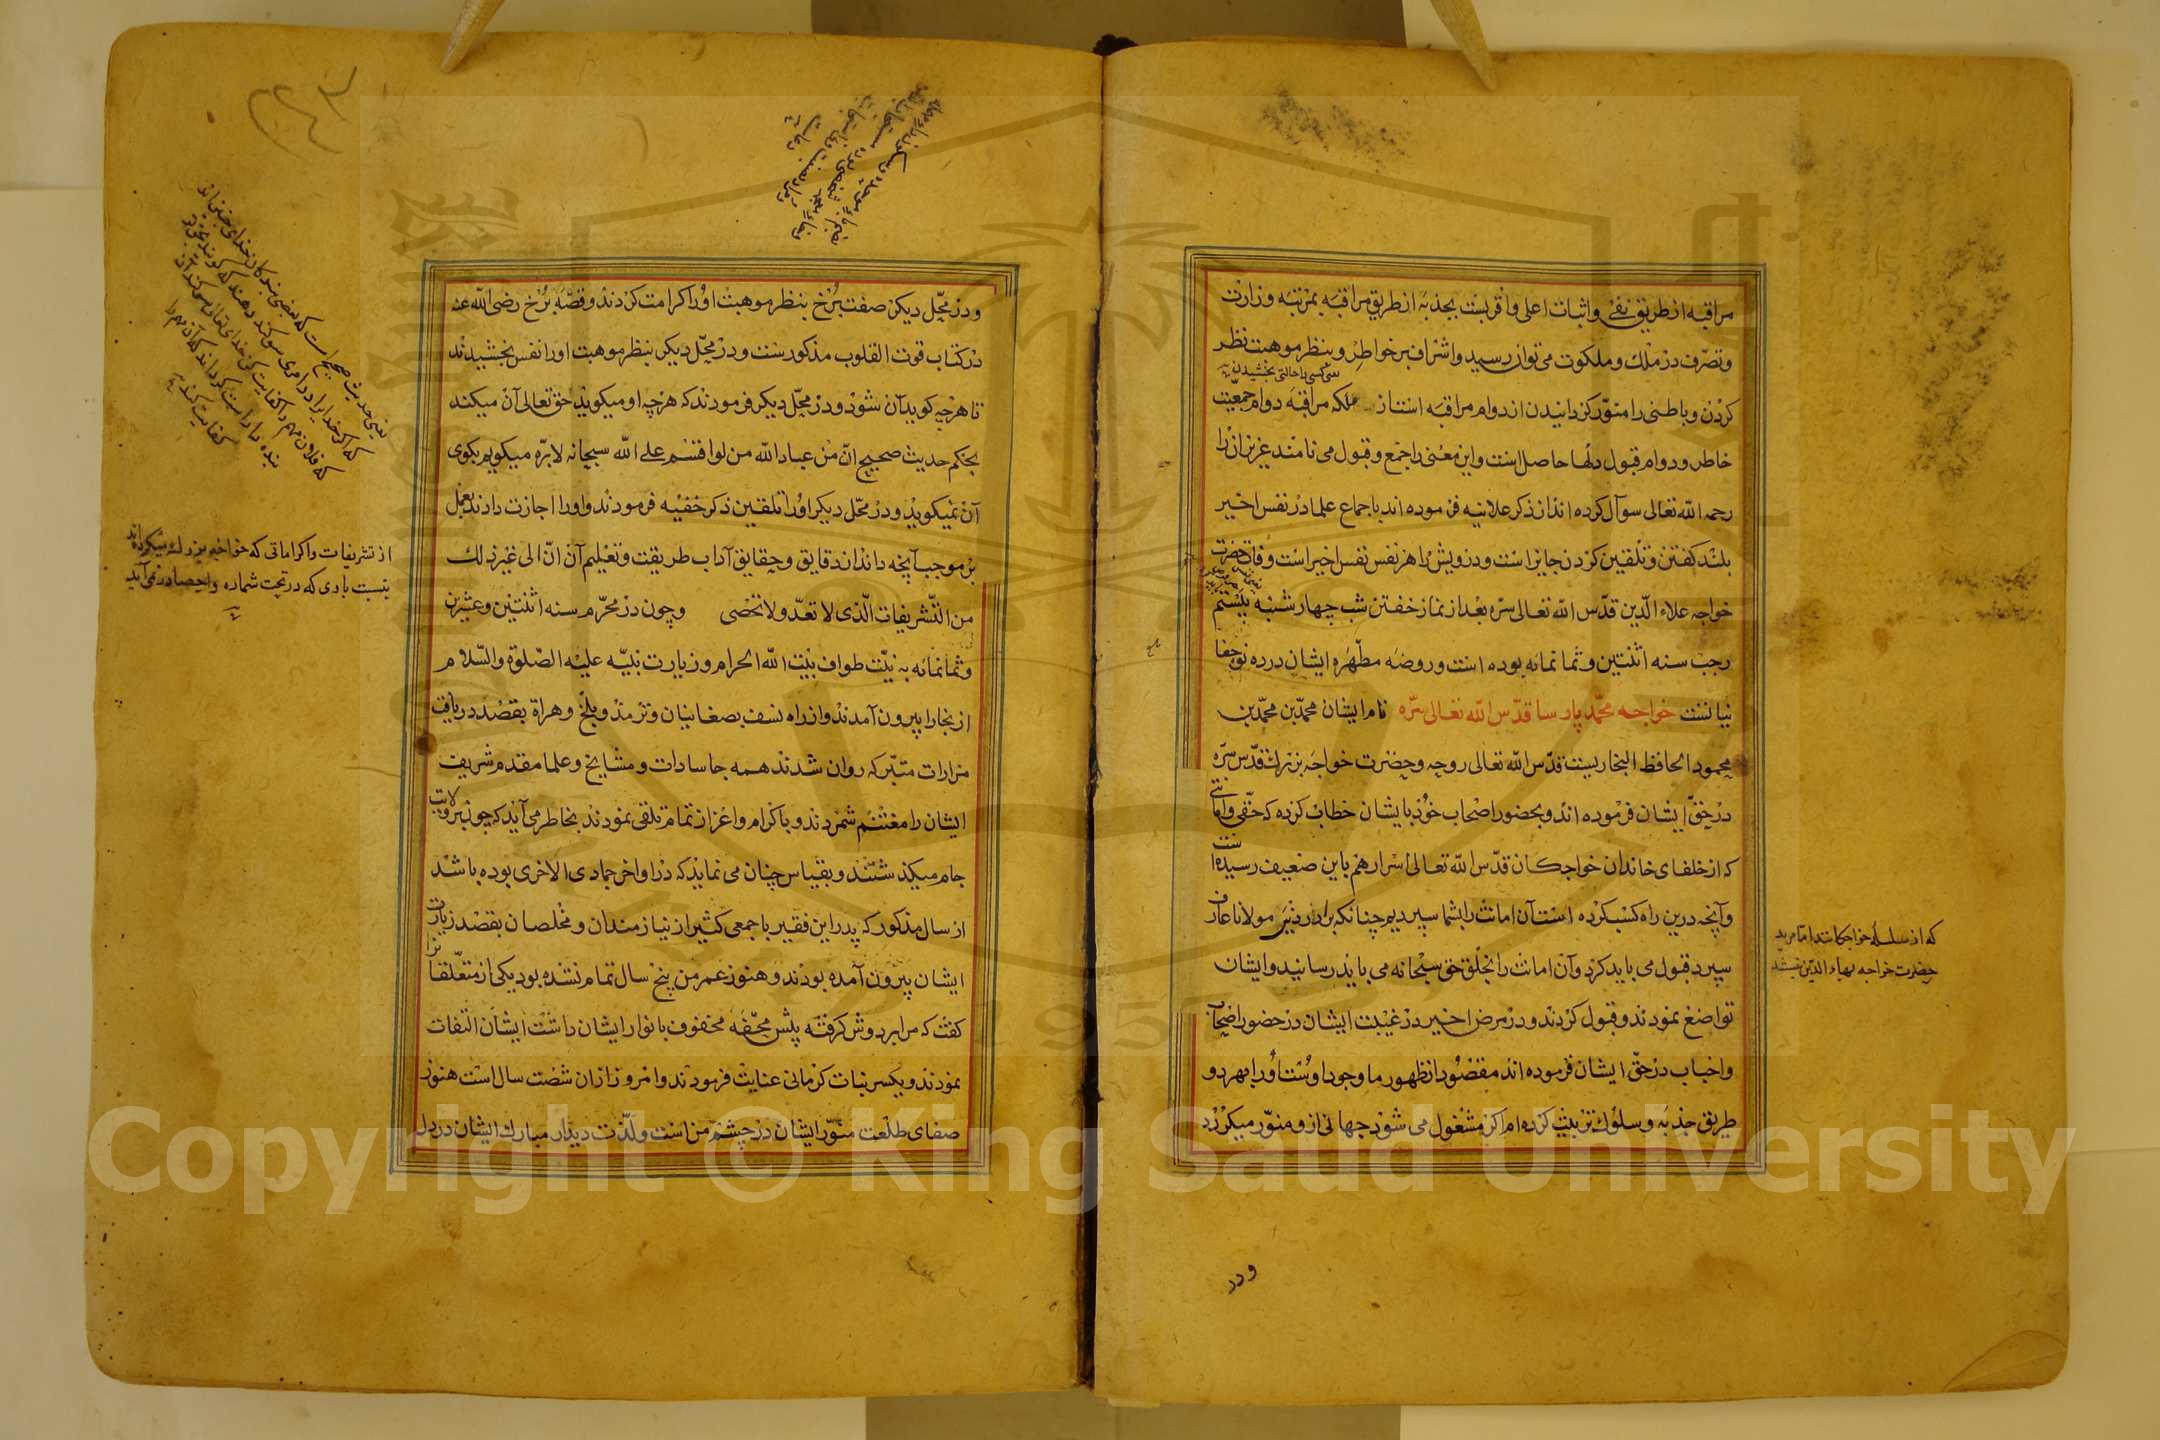 مراقبه از طریق نفی و اثبات اعلی و اقربست بجذبه از طریق مراقبه بمرتبه وزارت
و تصرف در ملک و ملکوت می توان رسید و اشراف بر خواطر و بنظر موهبت نظر
یعنی کسی را حالتی بخشیدن
کردن و باطنی را منور کردانیدن از دوام مراقبه است از ملکه مراقبه دوام جمعیت
خاطر و دوام قبول دلها حاصل است و این معنی را جمع و قبول می نامند عزیزان را
رحمه الله تعالی سوآل کرده اند از ذکر علانیه فرموده اند باجماع علما در نفس اخیر
بلند کفتن و تلقین کردن جایز است و درویش را هر نفس نفس اخیر است وفات حضرت
خواجه علاء الدین قدس الله تعالی سره بعد از نماز خفتن شب چهار شنبه بیستم
رجب سنه اثنتین و ثمانمائه بوده است و روضه مطهره ایشان در ده نو جفا
نیانست خواجه محمد پارسا قدس الله تعالی سره نام ایشان محمد بن محمد بن
محمود الحافظ البخاریست قدس الله تعالی روحه و حضرت خواجه بزرک قدس سره
در حق ایشان فرموده اند و بحضور اصحاب خود بایشان خطاب کرده که حقی و امانتی
که از خلفای خاندان خواجکان قدس الله تعالی اسرارهم باین ضعیف رسیده است
و آنچه درین راه کسب کرده است آن امانت را بشما سپردیم چنانکه برادر دینی مولانا عارف
سپرد قبول می باید کرد و آن امانت را بخلق حق سبحانه می باید رسانید و ایشان
تواضع نمودند و قبول کردند و در مرض اخیر در غیبت ایشان در حضور اصحاب
و احباب در حق ایشان فرموده اند مقصود از ظهور ما وجود اوست او را بهر دو
طریق جذبه و سلوک تربیت کرده ام اکر مشغول می شود جهانی از و منور میکردد
که از سلسله خواجکانند اما مرید
حضرت خواجه بهاء الدین نقشبند
و در
و در محل دیکر صفت برخ بنظر موهبت او را کرامت کردند و قصه برخ رضی الله عنه
در کتاب قوت القلوب مذکورست و در محل دیکر بنظر موهبت او را نفس بخشیدند
تا هرچه کوید آن شود و در محل دیکر فرمودند که هرچه او میکوید حق تعالی آن میکند
بحکم حدیث صحیح ان من عباد الله من لو اقسم علی الله سبحانه لابره میکویم بکوی
آن نمیکوید و در محل دیکر او را تلقین ذکر خفیه فرمودند و او را اجازت دادند بعمل
بر موجب آنچه داند از دقایق و حقایق آداب طریقت و تعلیم آن الی غیر ذلک
من التشریفات الذی لا تعد ولا تحصی و چون در محرم سنه اثنتین و عشرین
و ثمانمائه به نیت طواف بیت الله الحرام و زیارت نبیه علیه الصلوة والسلام
از بخارا بیرون آمدند و از راه نسف بصغانیان و ترمذ و بلخ و هراة بقصد دریافت
مزارات متبرکه روان شدند همه جا سادات و مشایخ و علما مقدم شریف
ایشان را مغتنم شمردند و باکرام و اعزاز تمام تلقی نمودند بخاطر می آید که چون بر ولایت
جام میکذشتند و بقیاس چنان می نماید که در اواخر جمادی الاخری بوده باشد
از سال مذکور که پدر این فقیر با جمعی کثیر از نیازمندان و مخلصان بقصد زیارت
ایشان بیرون آمده بودند و هنوز عمر من پنج سال تمام نشده بود یکی از متعلقانرا
کفت که مرا بر دوش کرفته پیش محفه محفوف بانوار ایشان داشت ایشان التفات
نمودند و یکسر نبات کرمانی عنایت فرمودند و امروز از آن شصت سال است هنوز
صفای طلعت منور ایشان در چشم من است و لذت دیدار مبارک ایشان در دل
یعنی حدیث صحیح است که بعضی بندکان خدای
از تشریفات و اکراماتی که خواجه بزرک میکرده اند
بنسبت
که در تحت شماره و احصا در نمی آید
Copyright © King Saud University
1957